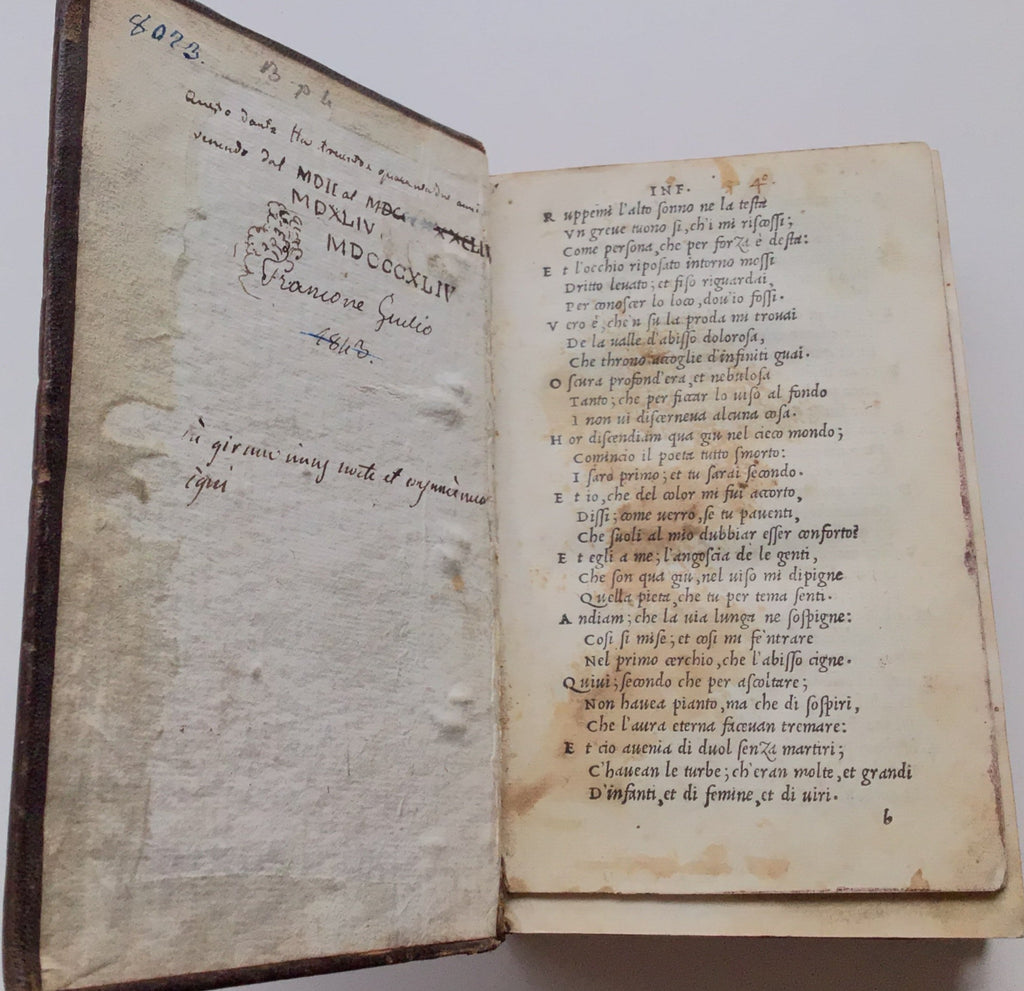 8023.
B p 4
Questo Dante Ha trecento quarantadue anni
venendo dal MDII al MDCCCXLIV
MDXLIV.
MDCCCXLIV
Francione Giulio
1843.
in girum imus nocte et
igni
INF. 4°
R uppemi l'alto sonno ne la testa
Vn greue tuono si, ch'i mi riscossi;
Come persona, che per forza è desta:
E t l'occhio riposato intorno mossi
Dritto leuato; et fiso riguardai,
Per conoscer lo loco, dou'io fossi.
V ero è, che'n su la proda mi trouai
De la ualle d'abisso dolorosa,
Che throno accoglie d'infiniti guai.
O scura profond'era, et nebulosa
Tanto; che per ficcar lo uiso al fondo
I non ui discerneua alcuna cosa.
H or discendiam qua giu nel cieco mondo;
Comincio il poeta tutto smorto:
I saro primo; et tu sarai secondo.
E t io, che del color mi fui accorto,
Dissi; come uerro, se tu pauenti,
Che suoli al mio dubbiar esser conforto?
E t egli a me; l'angoscia de le genti,
Che son qua giu, nel uiso mi dipigne
Quella pieta, che tu per tema senti.
A ndiam; che la uia lunga ne sospigne:
Cosi si mise; et cosi mi fe'ntrare
Nel primo cerchio, che l'abisso cigne.
Quiui; secondo che per ascoltare;
Non hauea pianto, ma che di sospiri,
Che l'aura eterna faceuan tremare:
E t cio auenia di duol senza martiri;
C'hauean le turbe; ch'eran molte, et grandi
D'infanti, et di femine, et di uiri.
b